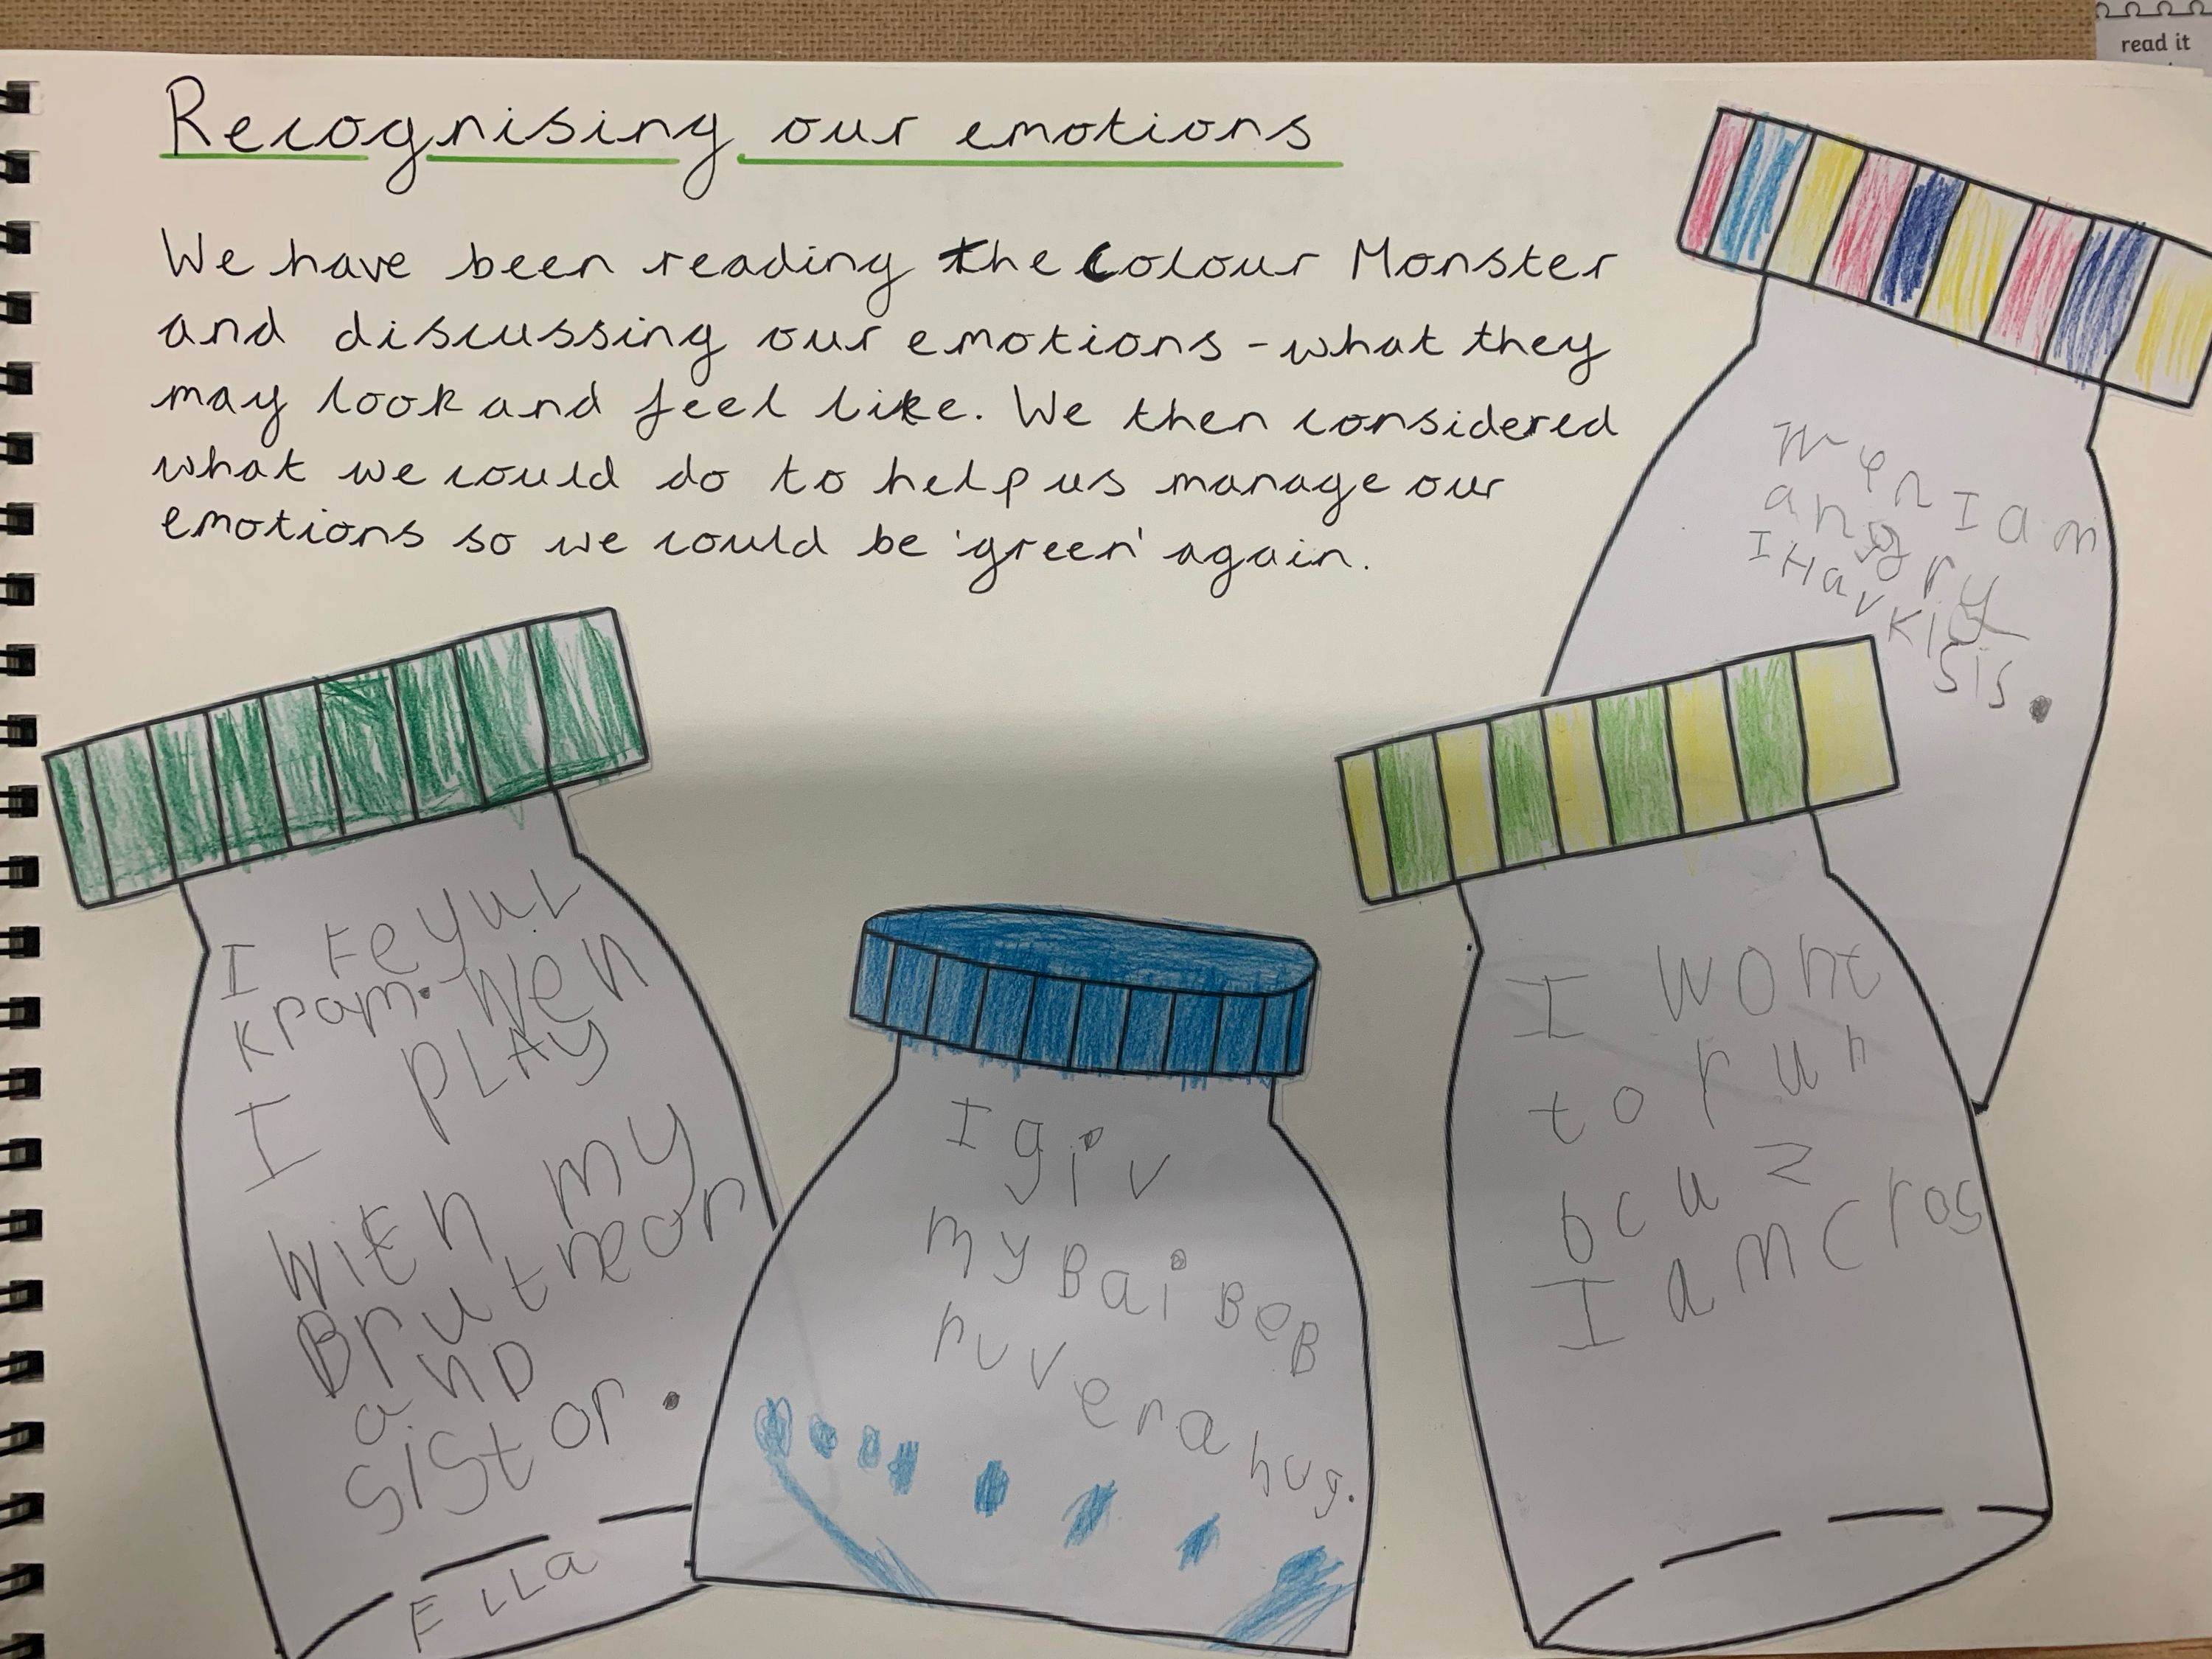 read it
Recognising our emotions
We have been reading the Colour Monster
and discussing our emotions - what they
may look and feel like. We then considered
what we could do to help us manage our
emotions so we could be 'green' again.
Wen I am
angry
I Hav KI
SIS.
I FeyuL
kram. Wen
I PLAY
With my
Brutheor
anD
SiStor.
ELLa
I giv
my Bai BeB
ruver a hug.
I wont
to run
bcuz
I am cros